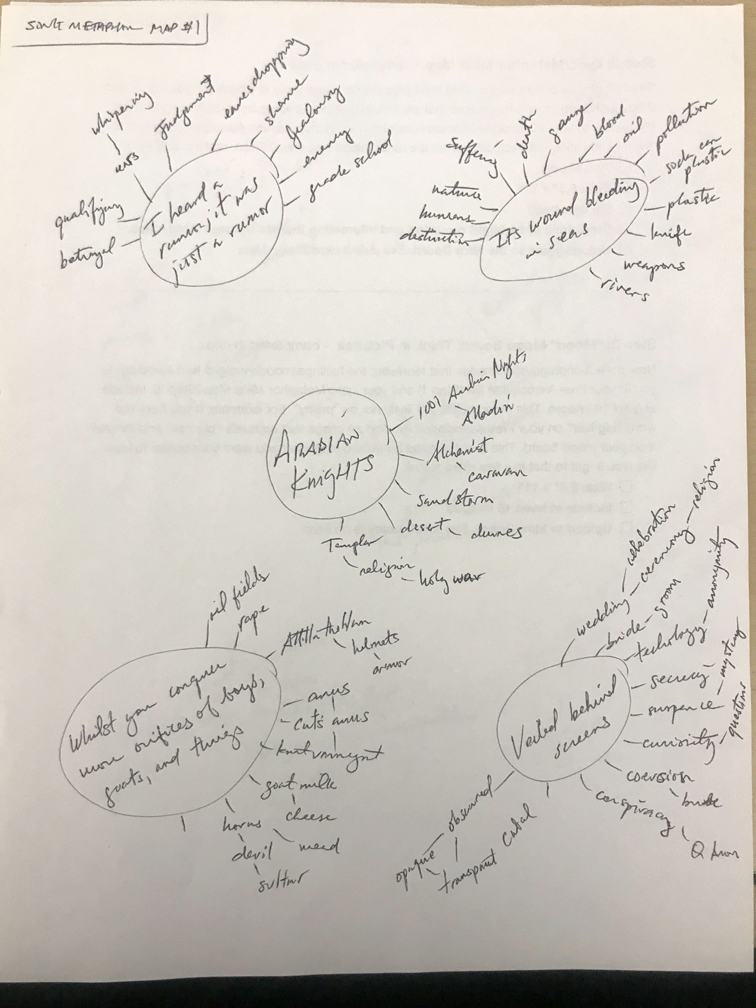 SONG METAPHOR MAP #1
whispering
Judgment
eavesdropping
shame
Jealousy
enemy
grade school
qualifying
betrayal
I heard a
rumor, it was
just a rumor
suffering
death
gauze
blood
oil
pollution
soda can
plastic
plastic
knife
weapons
rivers
nature
humans
destruction
It's wound bleeding
in seas
ARABIAN
KNIGHTS
1001 Arabian Nights
Alladin
Alchemist
caravan
sandstorm
desert
dunes
Templar
religion
holy war
oil fields
rape
Attila the Hun
helmets
armor
anus
cat's anus
goat milk
cheese
mead
horns
devil
sulfur
Whilst you conquer
more orifices of boys,
goats, and things
Veiled behind
screens
wedding
celebration
ceremony
religion
bride
groom
techology
anonymity
secrecy
suspence
mystery
curiosity
questions
coersion
bribe
conspiracy
Q Anon
cabal
obscured
opaque